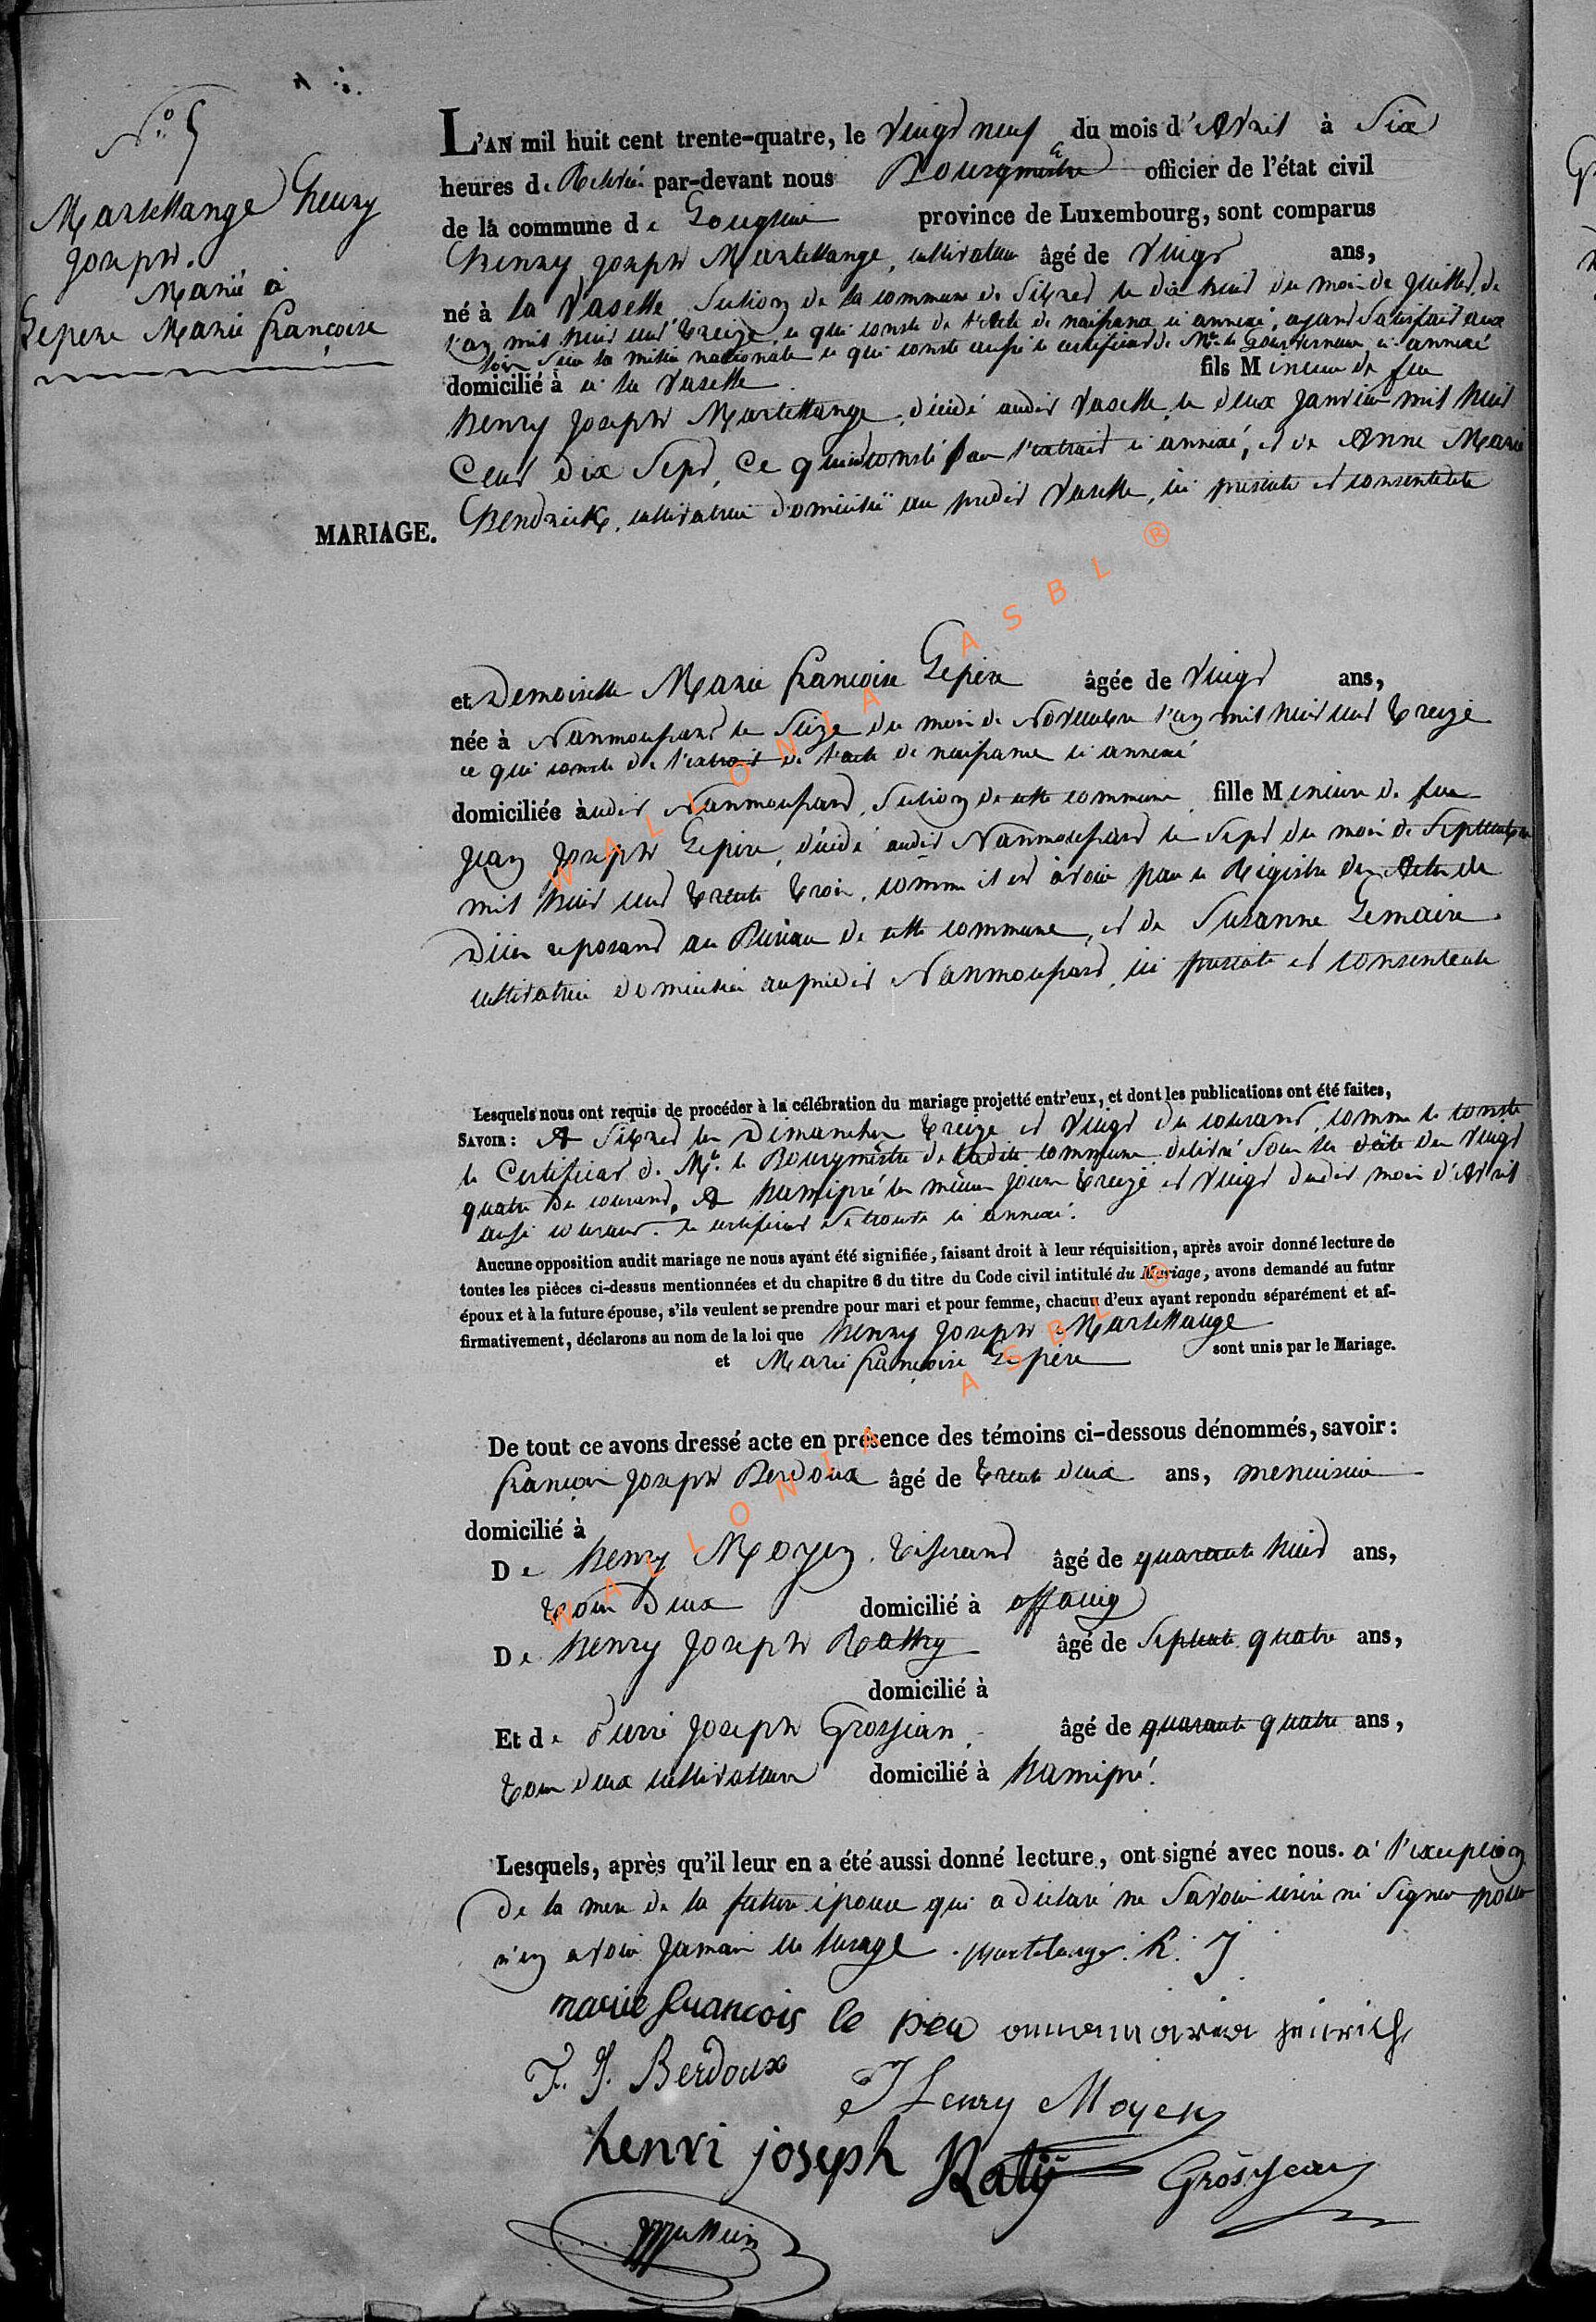 N.° 5
Martellange henry
Joseph.
Marié à
Lepere Marie françoise
L'AN mil huit cent trente-quatre, le Vingt neuf du mois d'Avril à Six
heures de Relevée par-devant nous Bourgmestre officier de l'état civil
de la commune de Longlier province de Luxembourg, sont comparus
henry Joseph Martellange, cultivateur âgé de Vingt ans,
né à la Vaselle Section de la commune de Sibret le dix huit du mois de Juillet, de
l'an mil huit cent treize, ce qui conste de l'acte de naissance ci annexé, ayant Satisfait aux
loix Sur la milice nationale ce qui conste aussi le certificat de Mr. le Gouverneur ci annexé
domicilié à la Vaselle fils Mineur de feu
henry Joseph Martellange, décédé audit Vaselle le deux Janvier mil huit
Cent dix Sept, Ce qui conste par l'extrait ci annexé, et de Anne Marie
hendrick, cultivatrice domiciliée au predit Vaselle, ici presente et consentente
MARIAGE.
et Demoiselle Marie françoise Lepère âgée de Vingt ans,
née à Nanmoussart le Seize du mois de Novembre l'an mil huit cent treize
ce qui conste de l'extrait de l'acte de naissance ci annexé
domiciliée audit Nanmoussart, Section de cette commune, fille Mineure de feu
Jean Joseph Lepère, décédé audit Nanmoussart le Sept du mois de Septembre
mil huit cent trente trois, comme il est à voir par le Régistre des Actes de
Décès reposant au Bureau de cette commune, et de Suzanne Lemaire
cultivatrice domiciliée au predit Nanmoussart, ici presente et consentente
Lesquels nous ont requis de procéder à la célébration du mariage projetté entr'eux, et dont les publications ont été faites,
SAVOIR: A Sibret les Dimanches treize et Vingt du courant, comme le conste
le Certificat de Mr. le Bourgmestre de ladite commune delivré Sous la date du Vingt
quatre du courant, A hamipré les mêmes jours treize et Vingt dudit mois d'Avril
aussi courant. le certificat Se trouve ci annexé.
Aucune opposition audit mariage ne nous ayant été signifiée, faisant droit à leur réquisition, après avoir donné lecture de
toutes les pièces ci-dessus mentionnées et du chapitre 6 du titre du Code civil intitulé du Mariage, avons demandé au futur
époux et à la future épouse, s'ils veulent se prendre pour mari et pour femme, chacun d'eux ayant repondu séparément et af-
firmativement, déclarons au nom de la loi que henry Joseph Martellange
et Marie françoise Lepère sont unis par le Mariage.
De tout ce avons dressé acte en présence des témoins ci-dessous dénommés, savoir:
françois Joseph Berdoux âgé de trente deux ans, menuisier
domicilié à
De henry Moyen, tisserand âgé de quarante huit ans,
tous Deux domicilié à offaing
De henry Joseph Rathy âgé de Septente quatre ans,
domicilié à
Et de Pierre Joseph Grosjean, âgé de quarante quatre ans,
tous deux cultivateurs domicilié à hamipré.
Lesquels, après qu'il leur en a été aussi donné lecture, ont signé avec nous. à l'exception
de la mere de la future épouse qui a déclaré ne Savoir écrire ni Signer pour
n'en avoir Jamais eu lusage. Martelange. h. J
marie francois le peer
F. J. Berdoux Henry Moyen
henri joseph Raty Grosjean
WALLONIA ASBL ®
WALLONIA ASBL ®